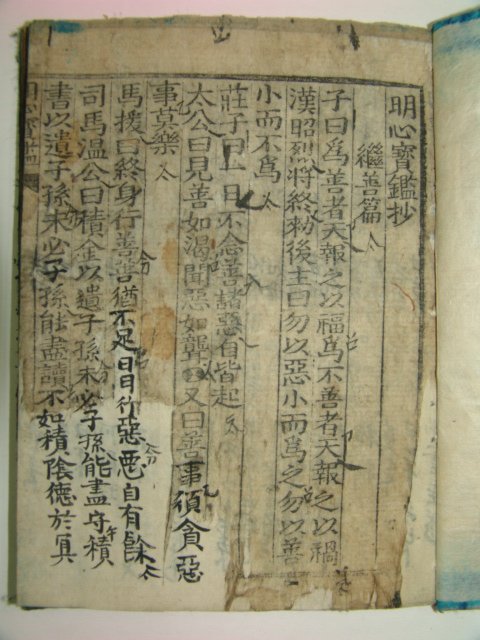 明心寶鑑抄
繼善篇
子曰爲善者天報之以福爲不善者天報之以禍
漢昭烈將終勅後主曰勿以惡小而爲之勿以善
小而不爲
莊子曰一日不念善諸惡自皆起
太公曰見善如渴聞惡如聾又曰善事須貪惡
事莫樂
馬援曰終身行善善猶不足日日行惡惡自有餘
司馬温公曰積金以遺子孫未必子孫能盡守積
書以遺子孫未必子孫能盡讀不如積陰德於冥
明心寶鑑